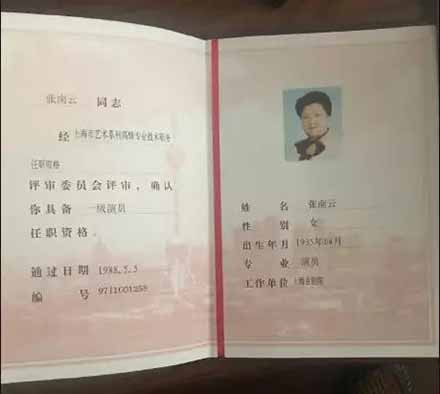 张南云 同志
经 上海市艺术系列高级专业技术职务
任职资格
评审委员会评审，确认
你具备 一级演员
任职资格。
通过日期 1998.5.5
编 号 9711001258
姓 名 张南云
性 别 女
出生年月 1935年04月
专 业 演员
工作单位